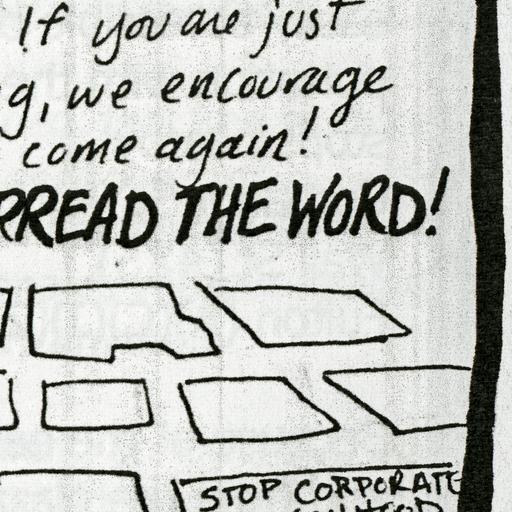 If you are just
g, we encourage
come again!
RREAD THE WORD!
STOP CORPORATE